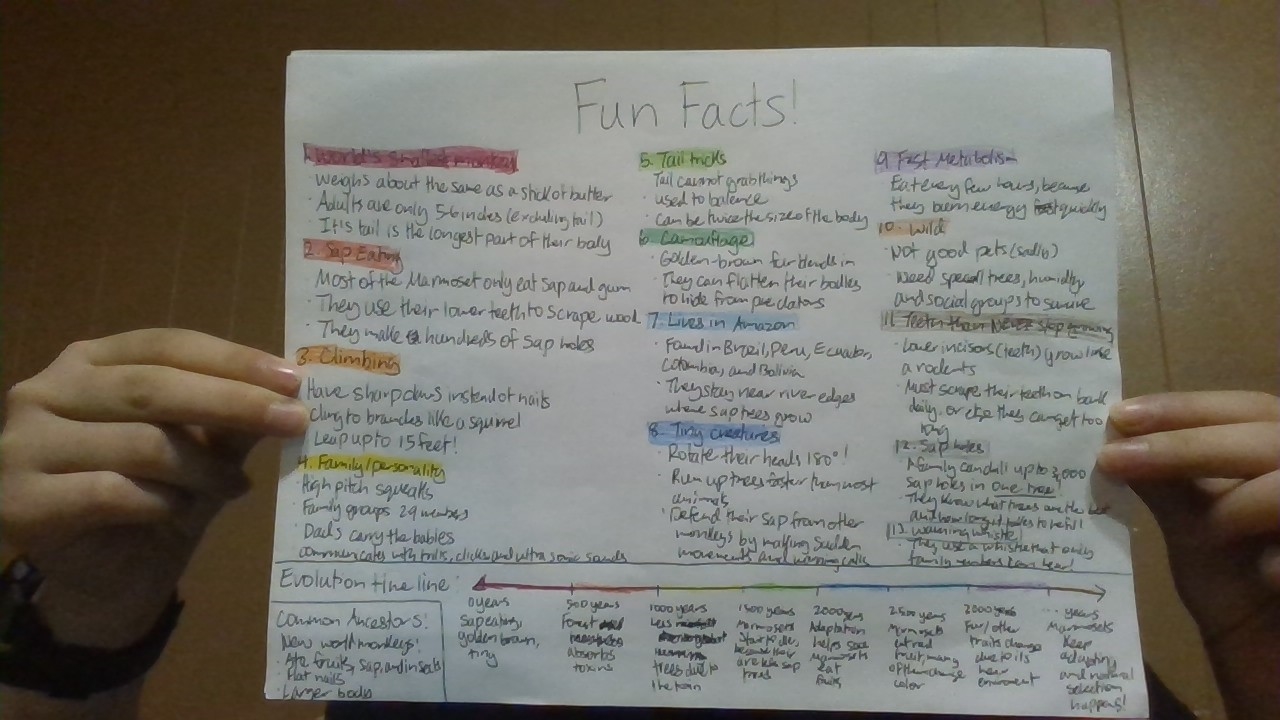 Fun Facts!
1. World's smallest monkey
· Weighs about the same as a stick of butter
· Adults are only 5-6 inches (excluding tail)
· It's tail is the longest part of their body
2. Sap Eating
· Most of the Marmoset only eat sap and gum
· They use their lower teeth to scrape wood
· They make hundreds of sap holes
3. Climbing
Have sharp claws instead of nails
· Cling to branches like a squirrel
· Leap up to 15 feet!
4. Family/personality
· High pitch squeaks
· Family groups 2-9 members
· Dads carry the babies
communicates with trills, clicks and ultra sonic sounds
5. Tail tricks
· Tail cannot grab things
· used to balance
· can be twice the size of the body
6. Camouflage
· Golden-brown fur blends in
· They can flatten their bodies
to hide from predators
7. Lives in Amazon
· Found in Brazil, Peru, Ecuador,
Colombia, and Bolivia
· They stay near river edges
where sap trees grow
8. Tiny creatures
· Rotate their heads 180°!
· Run up trees faster than most
animals
· Defend their sap from other
monkeys by making sudden
movements and warning calls
9. Fast Metabolism
Eat every few hours, because
they burn energy quickly
10. Wild
· Not good pets (sadly)
· Need special trees, humidity
and social groups to survive
11. Teeth that Never stop growing
· Lower incisors (teeth) grow like
a rodents
· Must scrape their teeth on bark
daily. or else they can get too
long
12. Sap holes
· A family can drill up to
sap holes in one tree!
· They know what trees are the best
and how long it takes to refill
13. Warning whistle
· They use a whistle that only
family members can hear!
Evolution time line:
Common Ancestors!
New world monkeys:
· Ate fruits, sap, and insects
· Flat nails
· Larger body
0 years
sap eating,
golden brown,
tiny
500 years
Forest
absorbs
toxins
1000 years
Less
trees due to
the toxin
1500 years
Marmosets
start to die,
because their
are less sap
trees
2000 years
Adaptation
helps
Marmosets
eat
fruits
2500 years
Marmosets
eat red
fruit, many
of them change
color
2000 years
Fur/other
traits change
due to its
new
enviroment
... years
Marmosets
keep
adapting
and natural
selection
happens!